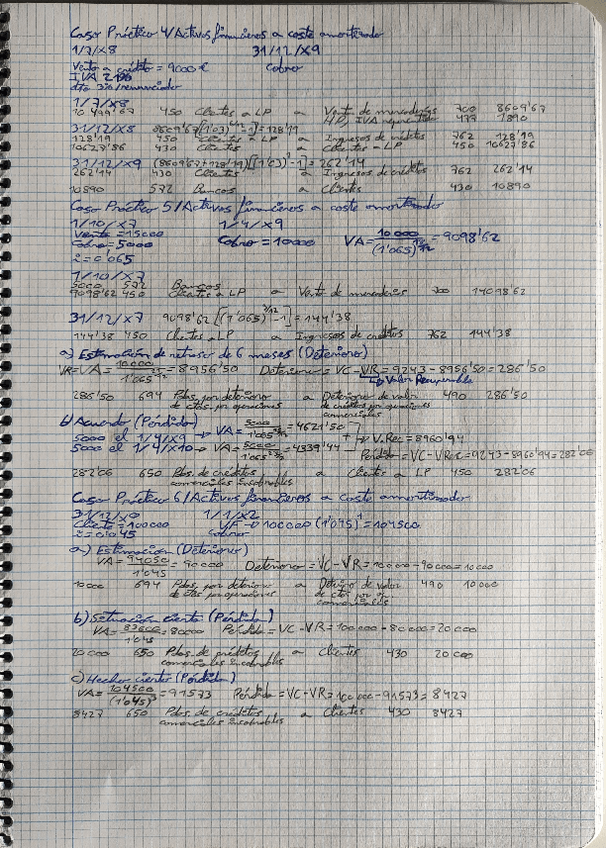 Caso Práctico 4/Activos financieros a coste amortizado
1/7/X8 31/12/X9
Venta a crédito = 9000 € Cobro
IVA 21%
dto 3% renunciador
1/7/X8
10499'67 450 Clientes a LP a Venta de mercaderías 700 8609'67
H.P. IVA repercutido 477 1890
31/12/X8 8609'67[(1'03) -1]=128'19
128'19 450 Clientes a LP a Ingresos de créditos 762 128'19
10627'86 430 Clientes a Clientes a LP 450 10627'86
31/12/X9 (8609'67+128'19)[(1'03)¹-1]=262'14
262'14 430 Clientes a Ingresos de créditos 762 262'14
10890 572 Bancos a Clientes 430 10890
Caso Práctico 5/Activos financieros a coste amortizado
1/10/X7 1/4/X9
Venta = 15000
Cobro = 5000 Cobro = 10000 VA = 10000/(1'065) = 9098'62
i = 0'065
1/10/X7
5000 572 Bancos
9098'62 450 Clientes a LP a Venta de mercaderías 700 14098'62
31/12/X7 9098'62[(1'065)^3/12-1]=144'38
144'38 450 Clientes a LP a Ingresos de créditos 762 144'38
a) Estimación de retraso de 6 meses (Deterioro)
VR=VA = 10000/1'065 = 8956'50 Deterioro = VC-VR = 9243-8956'50 = 286'50
↳ Valor Recuperable
286'50 694 Pdas. por deterioro a Deterioro de valor 490 286'50
de ctos por operaciones de créditos por operaciones
comerciales
b) Acuerdo (Pérdida)
5000 el 1/4/X9 → VA = 5000/1'065 = 4621'50
5000 el 1/4/X10 → VA = 5000/1'065 = 4339'44 + → V.Rec = 8960'94
Pérdida = VC-VRec = 9243-8960'94 = 282'06
282'06 650 Pdas. de créditos a Clientes a LP 450 282'06
comerciales incobrables
Caso Práctico 6/Activos financieros a coste amortizado
31/12/X0 1/1/X2
Cliente = 100000 VF → 100000 (1'045)¹ = 104500
i = 0'045 Cobro
a) Estimación (Deterioro)
VA = 94050/1'045 = 90000 Deterioro = VC-VR = 100000-90000 = 10000
10000 694 Pdas. por deterioro a Deterioro de valor 490 10000
de ctos por operaciones de ctos por op.
comerciales
b) Situación cierta (Pérdida)
VA = 83600/1'045 = 80000 Pérdida = VC-VR = 100000-80000 = 20000
20000 650 Pdas. de créditos a Clientes 430 20000
comerciales incobrables
c) Hecho cierto (Pérdida)
VA = 104500/(1'045)³ = 91573 Pérdida = VC-VR = 100000-91573 = 8427
8427 650 Pdas. de créditos a Clientes 430 8427
comerciales incobrables